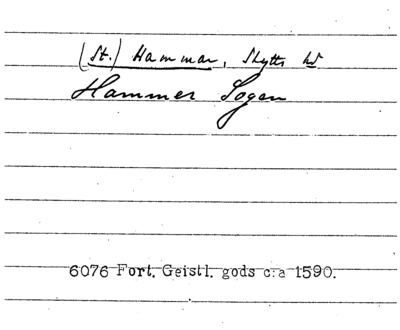 (St.) Hammar, Skytts hd
Hammer Sogen
6076 Fort. Geistl. gods c:a 1590.